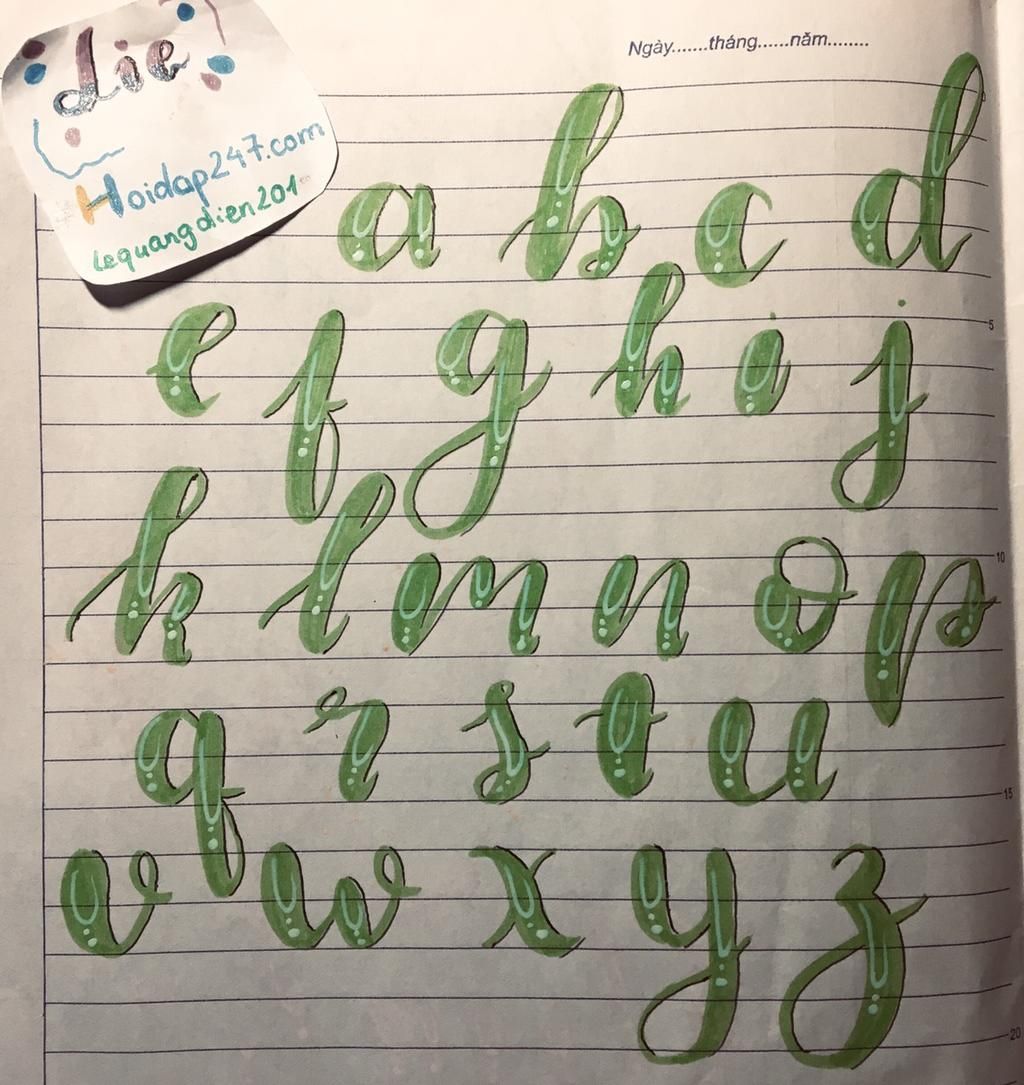 Die
Hoidap247.com
lequangdien201
Ngày.......tháng......năm........
a b c d
e f g h i j
5
k l m n o p
10
q r s t u
15
v w x y z
20